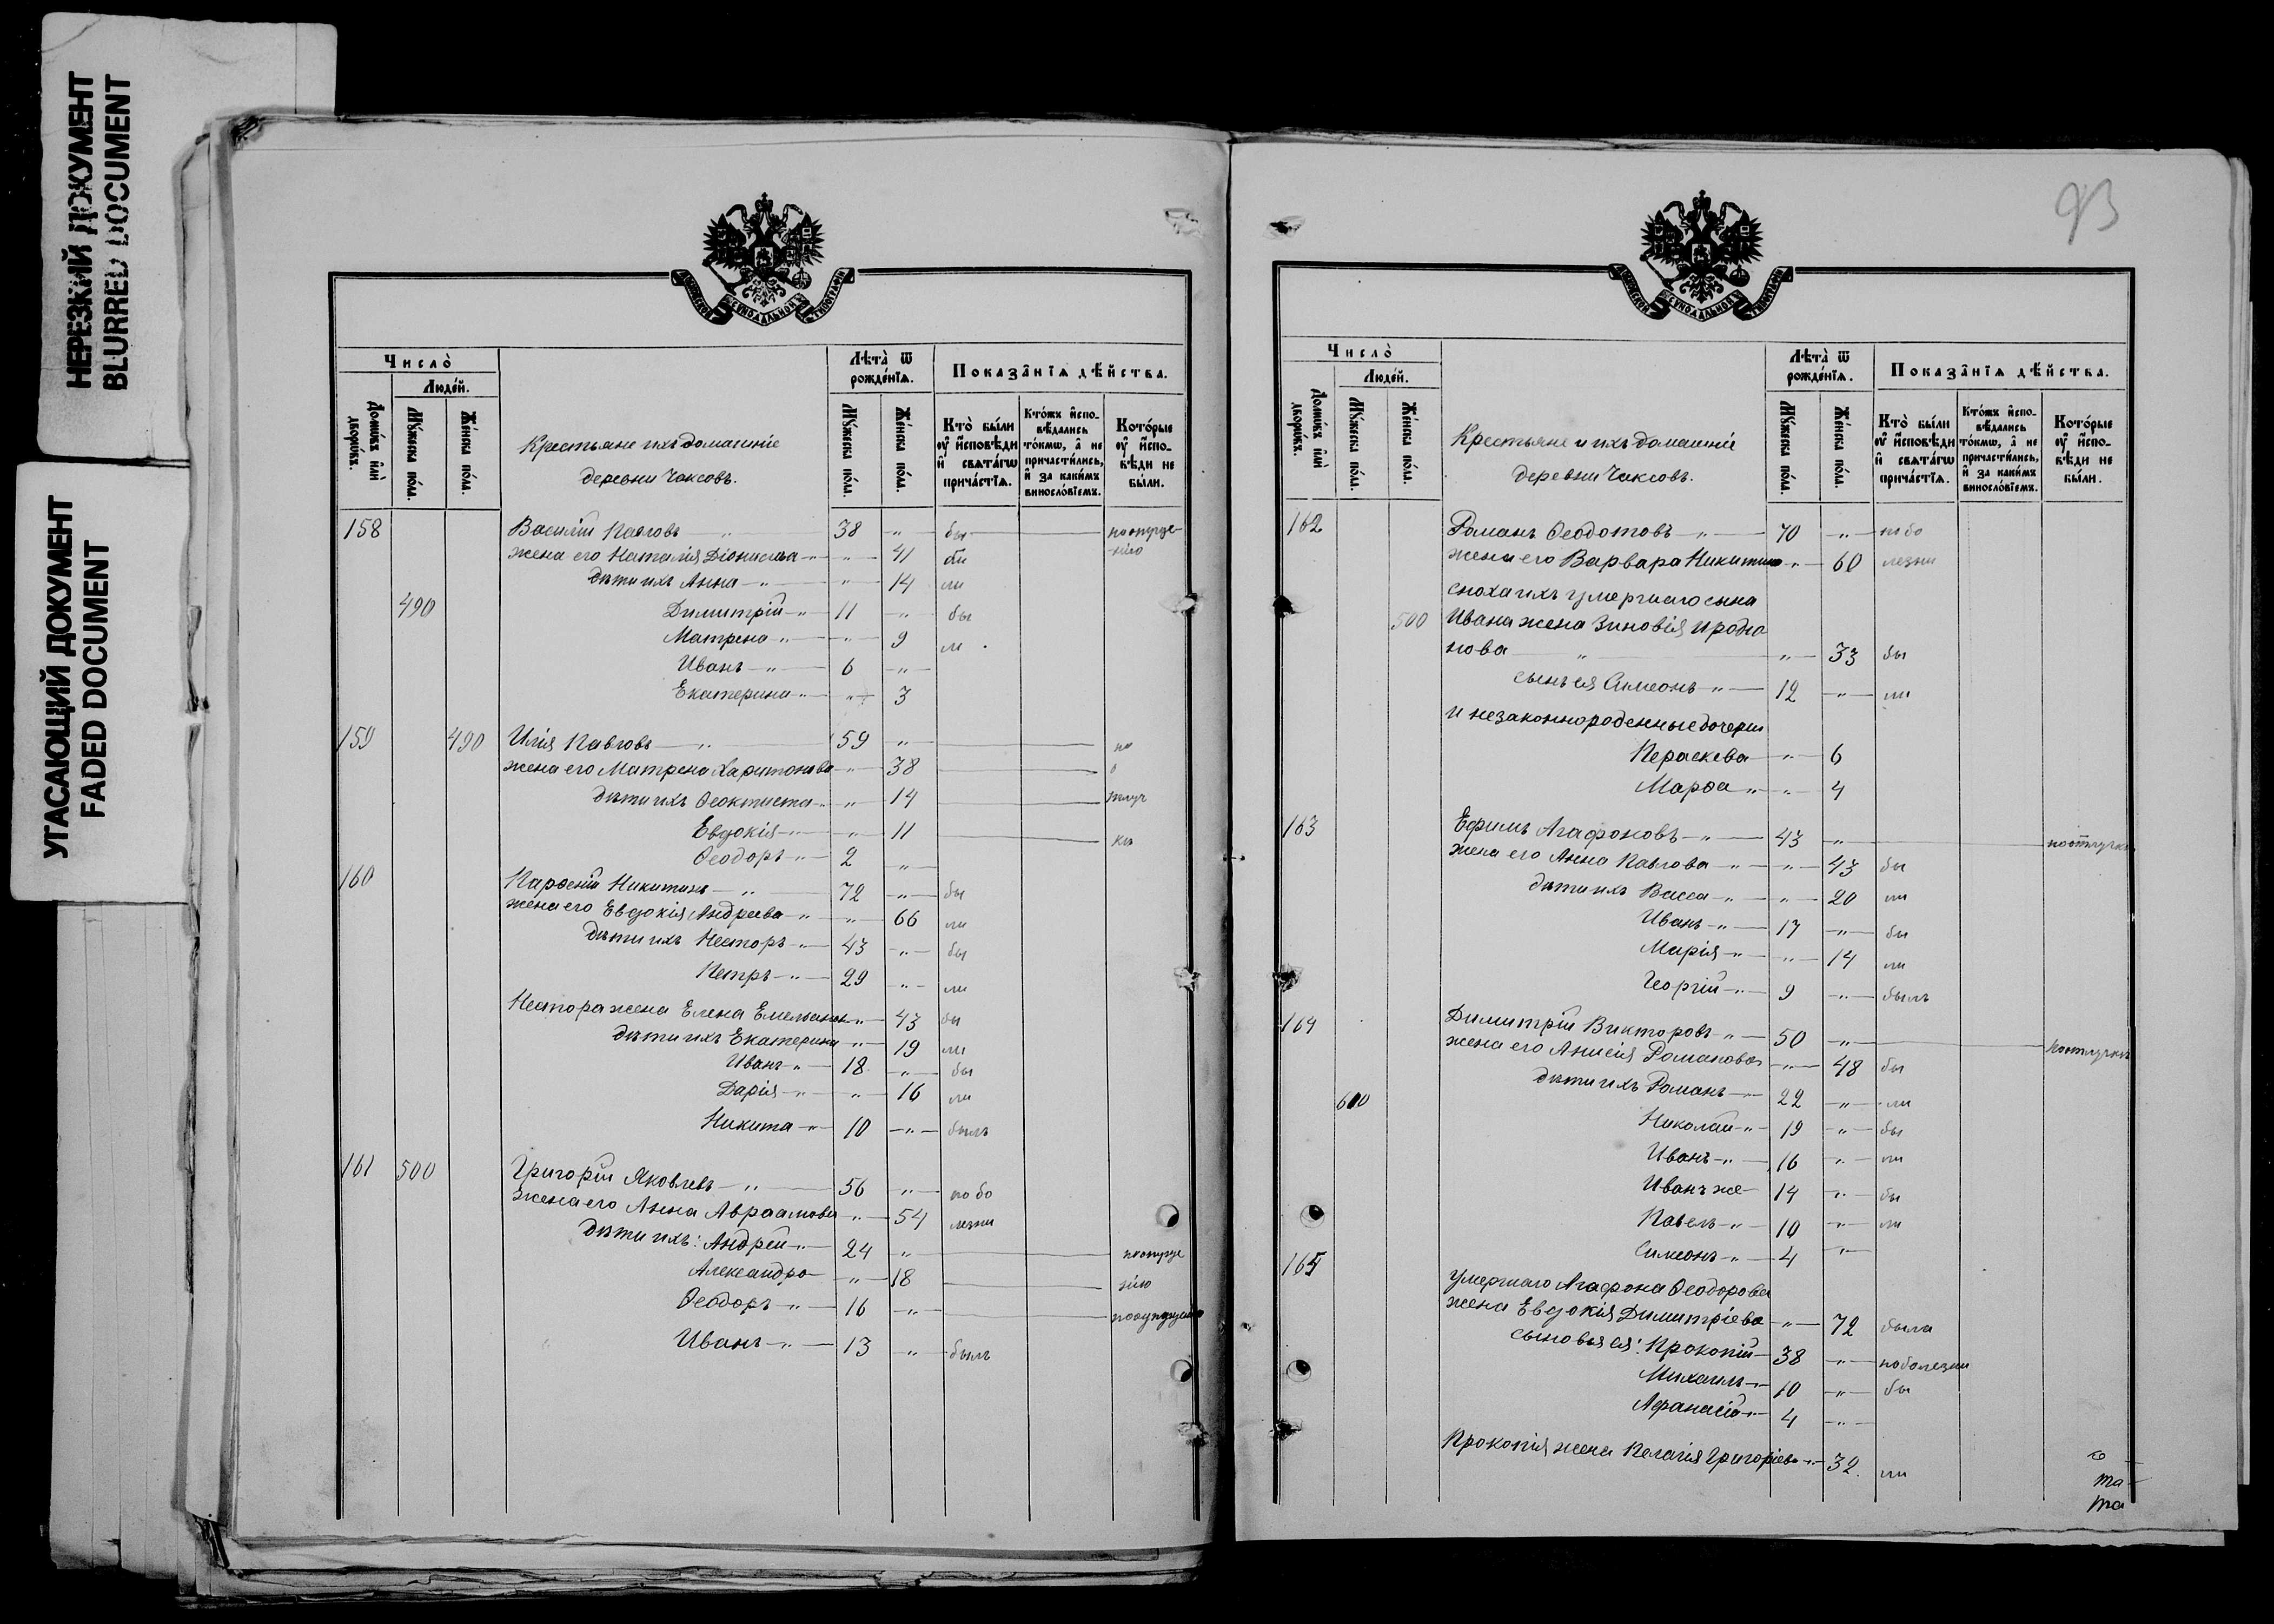 НЕРЕЗКИЙ ДОКУМЕНТ
BLURRED DOCUMENT
УГАСАЮЩИЙ ДОКУМЕНТ
FADED DOCUMENT
Число̀
Люде́й.
Домѡ́въ и҆лѝ дворѡ́въ.
Мꙋ́жеска по́ла.
Же́нска по́ла.
Крестьяне ихъ домашніе
деревни Чаксовъ.
Лѣ́та ѿ рожде́нїѧ.
Мꙋ́жеска по́ла.
Же́нска по́ла.
Показа̂нїѧ дѣ́йства.
Кто̀ бы́ли оу҆ и҆сповѣ́ди и҆ свѧта́гѡ прича́стїѧ.
Кто́жъ и҆спо-
вѣ́дались
то́кмѡ, а҆ не
причасти́лись,
и҆ за каки́мъ
винослóвїемъ.
Кото́рые
оу҆ и҆спо-
вѣ́ди не
бы́ли.
158 Василій Павловъ — " — 38 " бы поотрде-
жена его Наталія Діонисьева " " 41 нію
дѣти ихъ Анна — " — " 14 ли
490 Димитрій — " — 11 " бы
Матрена — " — " 9 ли
Иванъ — " — 6 "
Екатерина " " 3
159 490 Илія Павловъ — " — 59 " по
жена его Матрена Харитонова " 38 о
дѣти ихъ Ѳеоктиста " " 14 тлуч
Евдокія " " 11 кѣ
Ѳеодоръ " 2 "
160 Парѳеній Никитинъ — " — 72 " бы
жена его Евдокія Андреева " " 66 ли
дѣти ихъ Несторъ " 43 " бы
Петръ " 29 " ли
Нестора жена Елена Емельянов " 43 бы
дѣти ихъ Екатерина " 19 ли
Иванъ " 18 " бы
Дарія " " 16 ли
Никита " 10 " былъ
161 500 Григорій Яковлевъ — " — 56 " по бо
жена его Анна Авраамова " 54 лезни
дѣти ихъ: Андрей " 24 "
Александра " 18 нію
Ѳеодоръ " 16 "
Иванъ " 13 " былъ
93
Число̀
Люде́й.
Домѡ́въ и҆лѝ дворѡ́въ.
Мꙋ́жеска по́ла.
Же́нска по́ла.
Крестьяне и ихъ домашніе
деревни Чаксовъ.
Лѣ́та ѿ рожде́нїѧ.
Мꙋ́жеска по́ла.
Же́нска по́ла.
Показа̂нїѧ дѣ́йства.
Кто̀ бы́ли оу҆ и҆сповѣ́ди и҆ свѧта́гѡ прича́стїѧ.
Кто́жъ и҆спо-
вѣ́дались
то́кмѡ, а҆ не
причасти́лись,
и҆ за каки́мъ
винослóвїемъ.
Кото́рые
оу҆ и҆спо-
вѣ́ди не
бы́ли.
162 Романъ Ѳеодотовъ — " — 70 " по бо
жена его Варвара Никитина " 60 лезни
сноха ихъ умершаго сына
500 Ивана жена Зиновія Иродіо
нова " " 33 бы
сынъ ея Симеонъ " 12 " ли
и незаконнорожденные дочери
Пераскева " 6
Марѳа " " 4
163 Ефимъ Агафоновъ " 43 " поотлучкѣ
жена его Анна Павлова " " 43 бы
дѣти ихъ Васса " " 20 ли
Иванъ " 17 " бы
Марія " " 14 ли
Георгій " 9 " былъ
164 Димитрій Викторовъ " 50 " поотлучкѣ
жена его Анисія Романова " 48 бы
дѣти ихъ Романъ 22 " ли
610 Николай " 19 " бы
Иванъ " 16 " ли
Иванъ же 14 " бы
Павелъ " 10 " ли
Симеонъ " 4 "
165 Умершаго Агафона Ѳеодорова
жена Евдокія Димитріева " 72 была
сыновья ея: Прокопій 38 " поболезни
Михаилъ 10 " бы
Афанасій 4 "
Прокопія жена Пелагія Григоріева " 32. ли
та
та